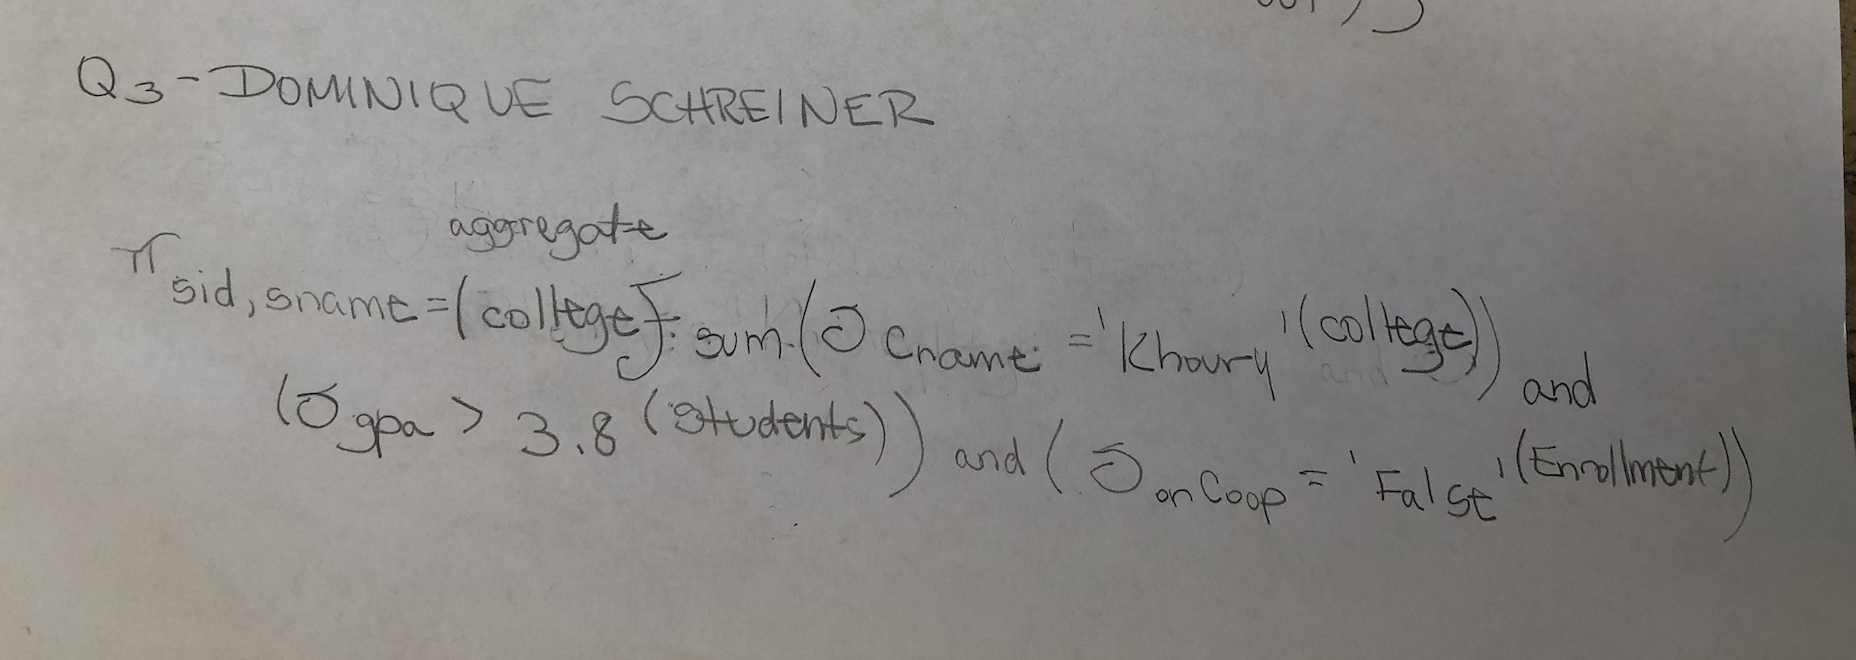 Q3 - DOMINIQUE SCHREINER
aggregate
π sid, sname = (college) F sum (σ Cname = 'Khoury' (college)) and
(σ gpa > 3.8 (Students)) and (σ onCoop = 'False' (Enrollment))